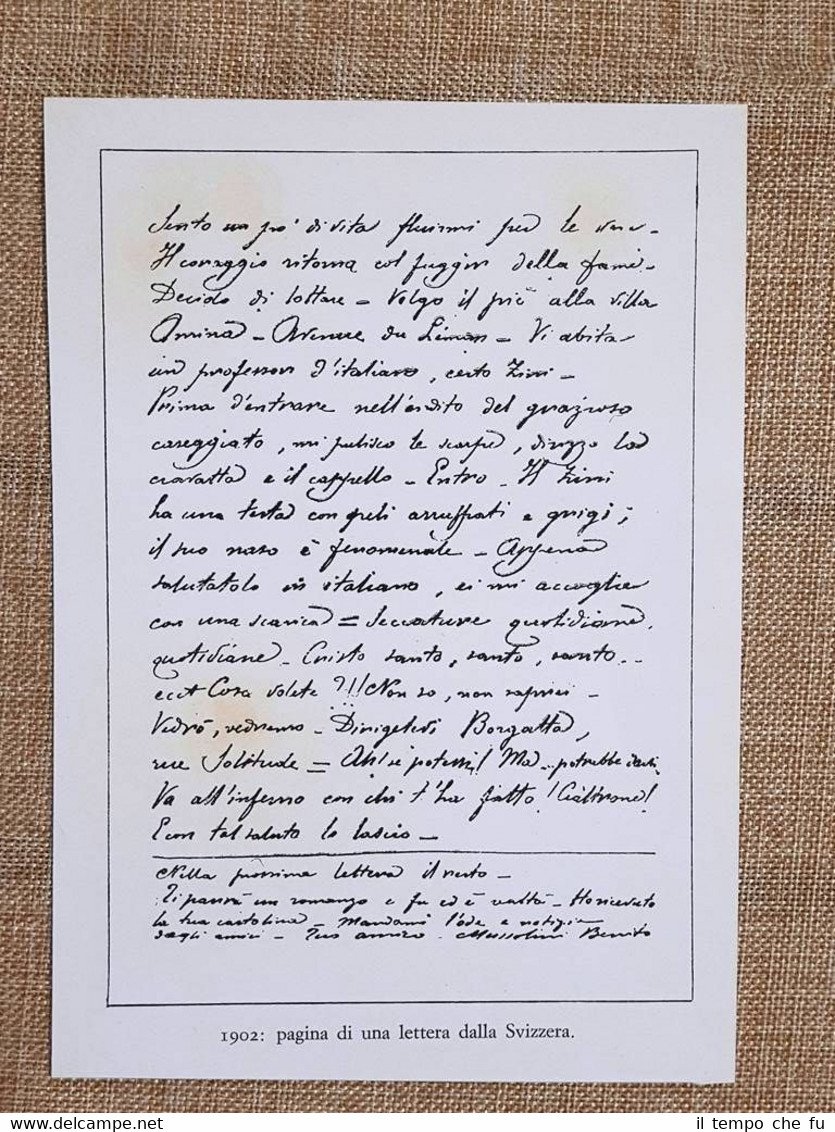 Sento un pò di vita fluirmi per le vene -
Il coraggio ritorna col fuggir della fame -
Decido di lottare - Volgo il piè alla villa
Amina - Avenue du Léman - Vi abita
un professor d'italiano, certo Zini -
Prima d'entrare nell'andito del grazioso
caseggiato, mi pulisco le scarpe, dirizzo la
cravatta e il cappello - Entro - Il Zini
ha una testa con peli arruffati e grigi;
il suo naso è fenomenale - Appena
salutatolo in italiano, ei mi accoglie
con una scarica = Seccature quotidiane,
quotidiane - Cristo santo, santo, santo..
ecct Cosa volete ?!! Non so, non saprei -
Vedrò, vedremo - Dirigetevi Borgatta,
rue Solitude - Ah! se potessi! Ma... potrebbe darsi.
Va all'inferno con chi t'ha fatto! Cialtrone!
E con tal saluto lo lascio -
Nella prossima lettera il resto -
Ti parrà un romanzo e fu ed è realtà - Ho ricevuto
la tua cartolina - Mandami l'ode e notizie
degli amici - Tuo amico. Mussolini Benito
1902: pagina di una lettera dalla Svizzera.
il tempo che fu